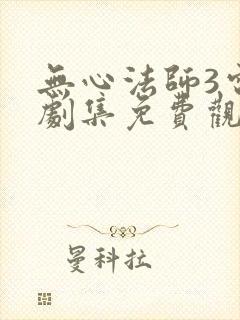 無心法師3
劇集免費觀
曼科拉